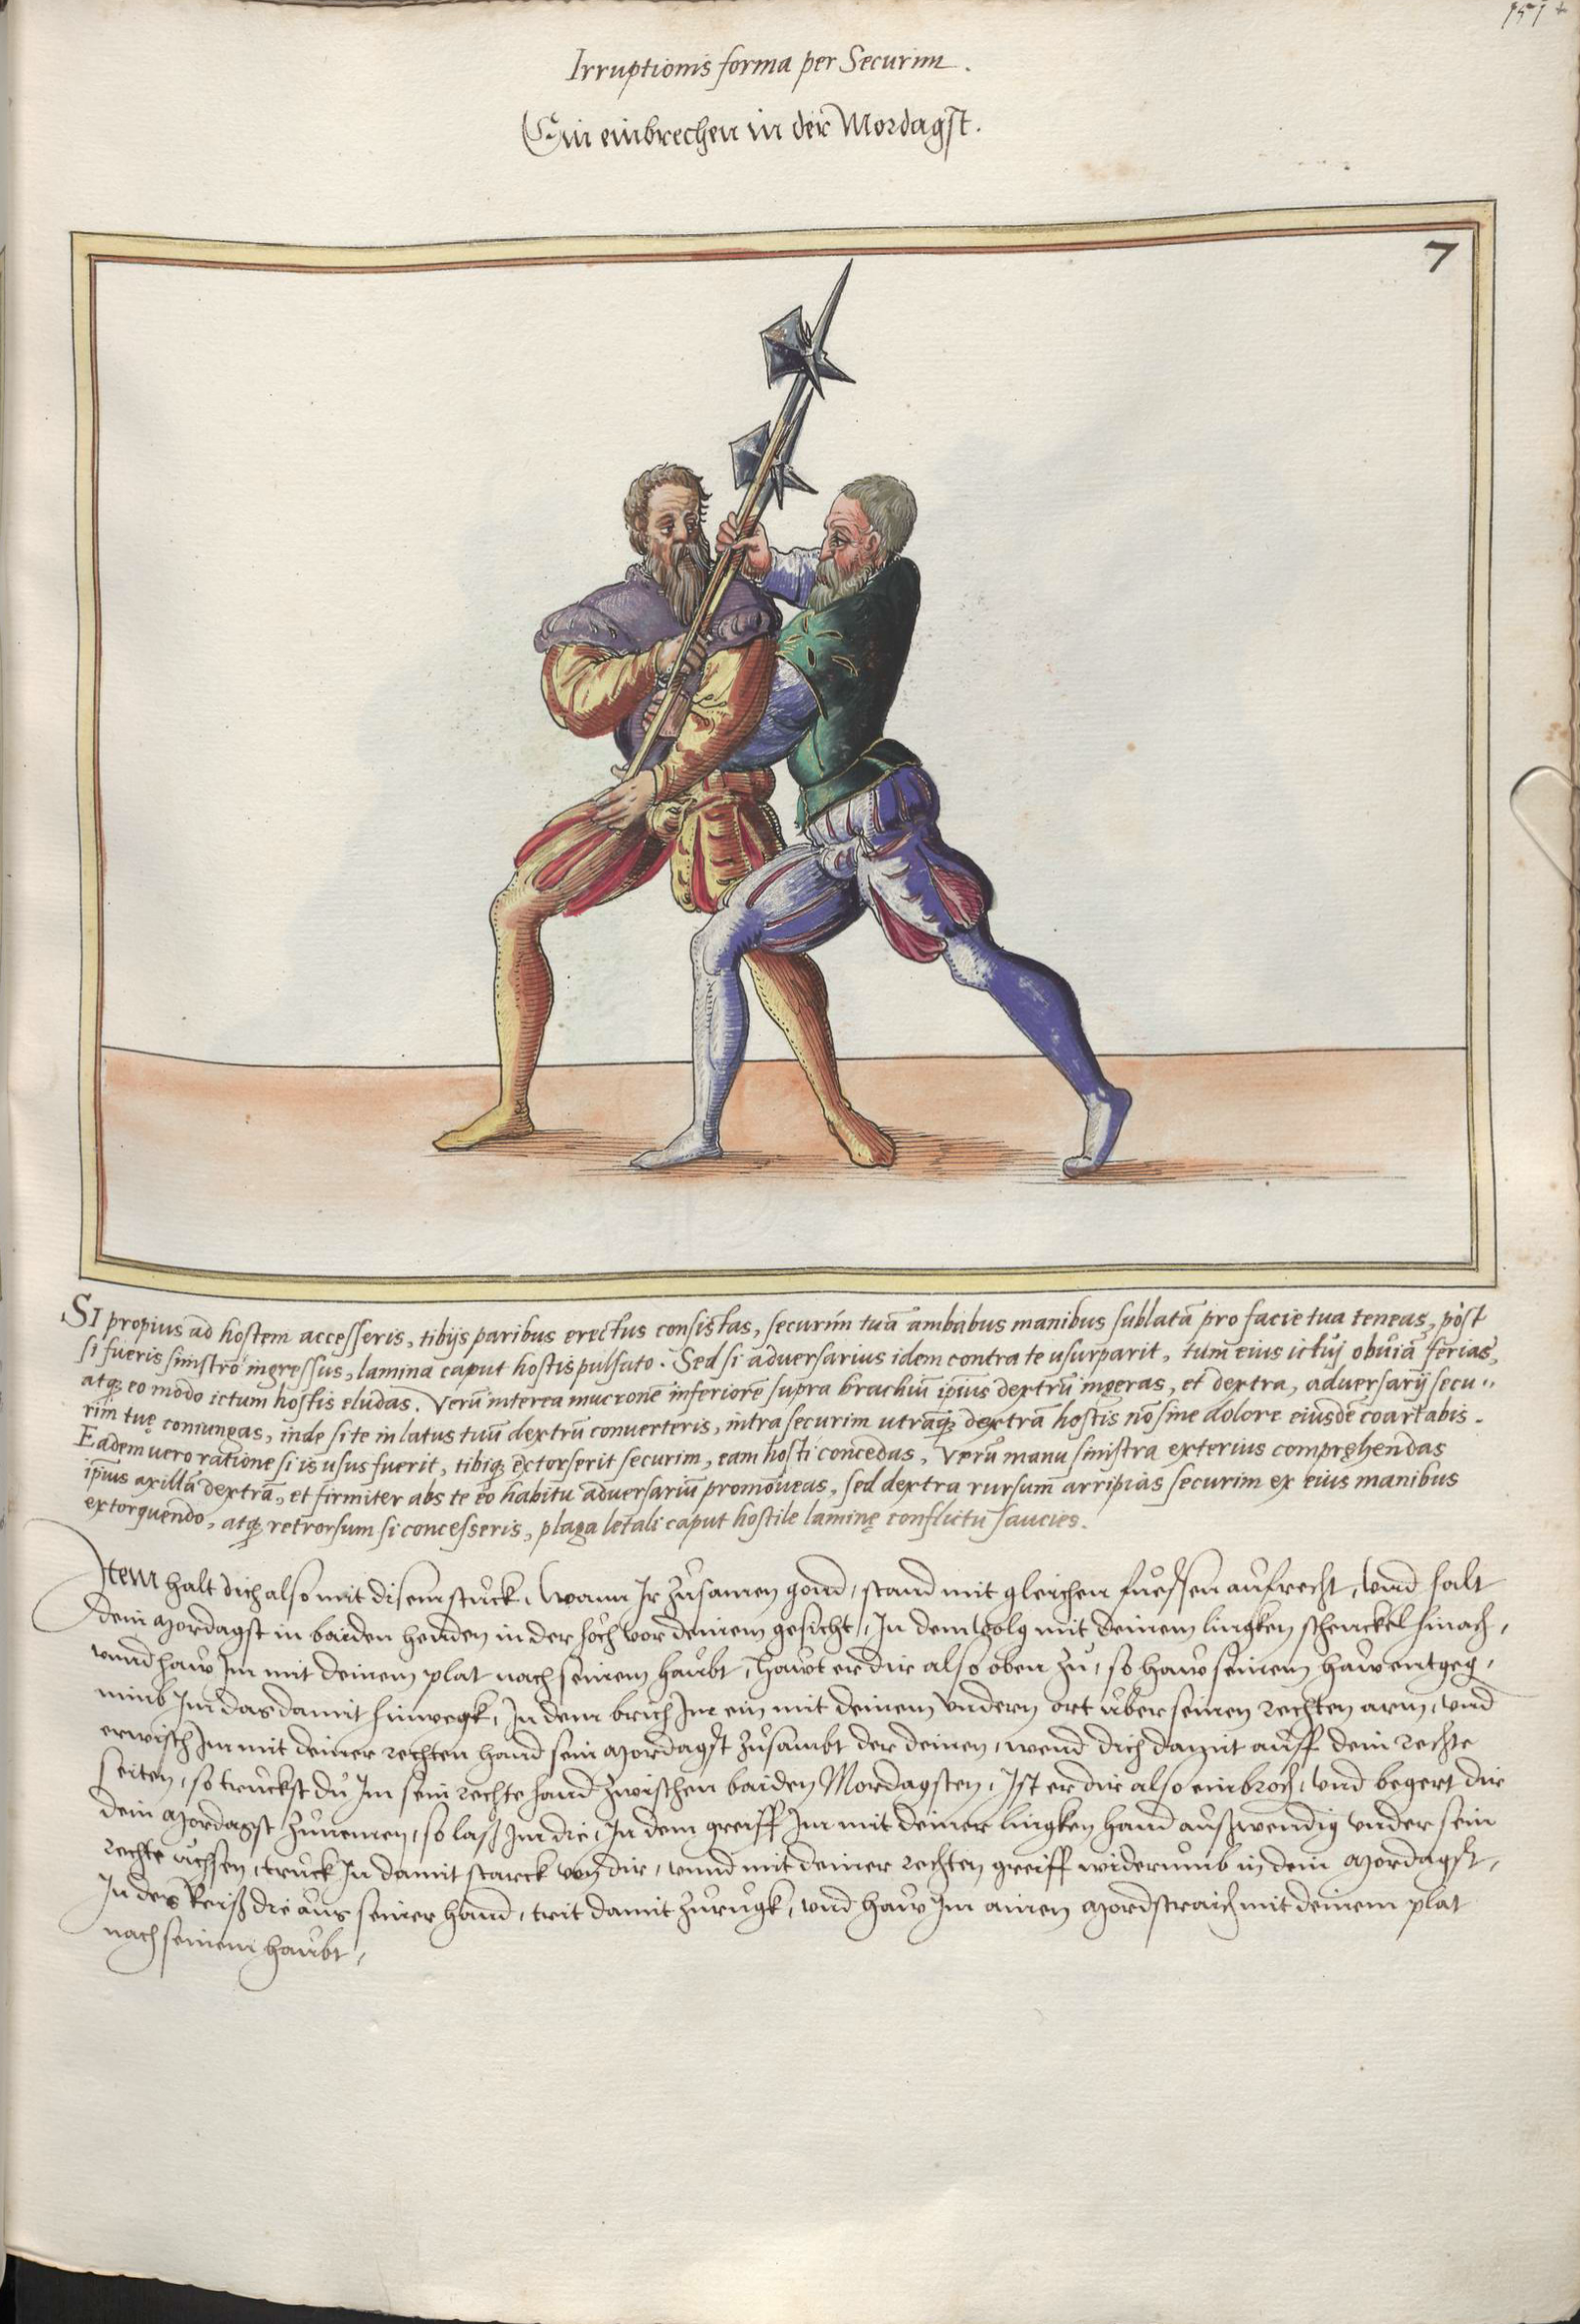 151
Irruptionis forma per Securim.
Ein einbrechen in der Mordagst.
7
SI propius ad hostem accesseris, tibijs paribus erectus consistas, securim tuā ambabus manibus sublatā pro facie tua teneas, post
si fueris sinistro ingressus, lamina caput hostis pulsato. Sed si adversarius idem contra te usurparit, tum eius ictuj obuiā ferias,
atq; eo modo ictum hostis eludas. Verū interea mucronē inferiorē supra brachiū ipius dextrū ingeras, et dextra, adversarij secu-
rim tuę coniungas, inde si te in latus tuū dextrū converteris, intra securim utramq; dextrā hostis nō sine dolore eiusdē coartabis.
Eadem uero ratione si is usus fuerit, tibiq; extorserit securim, eam hosti concedas, Verū manu sinistra exterius compręhendas
ipius axillā dextrā, et firmiter abs te eo habitu adversariū promoueas, sed dextra rursum arripias securim ex eius manibus
extorquendo, atq; retrorsum si concesseris, plaga letali caput hostile laminę conflictu saucies.
Item halt dich also mit disem stuckh, wann Ir zusamen gond, stand mit gleichen fuessen aufrecht, vnnd halt
dein mordagst in baiden henden in der höch vor deinem gesicht, In dem volg mit deinem lingken schenckel hinach,
vnnd haw Im mit deinem plat nach seinem haubt, hawt er dir also oben zu, so haw seinem haw entgeg,
nimb Im das damit hinwegk, In dem brich Im ein mit deinem vndern ort über seinen rechten arm, vnd
erwisch Im mit deiner rechten hand sein mordagst zusambt der deinen, wend dich damit auff dein rechte
seiten, so truckst du Im sein rechte hand zwischen baiden Mordagsten, Ist er dir also einbroch, vnd begert dir
dein mordagst zunemen, so laß Im die, In dem greiff Im mit deiner lingken hand außwendig vnder sein
rechte üchsen, truck In damit starck von dir, vnnd mit deiner rechten greiff widerumb in dein mordagst,
In des Reiß die aus seiner hand, trit damit zurugk, vnd haw Im ainen mordstraich mit deinem plat
nach seinem haubt,